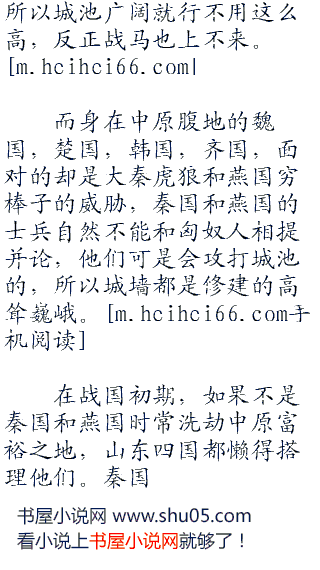 所以城池广阔就行不用这么
高，反正战马也上不来。
[m.hcihci66.com]
而身在中原腹地的魏
国，楚国，韩国，齐国，面
对的却是大秦虎狼和燕国穷
棒子的威胁，秦国和燕国的
士兵自然不能和匈奴人相提
并论，他们可是会攻打城池
的，所以城墙都是修建的高
耸巍峨。[m.hcihci66.com手
机阅读]
在战国初期，如果不是
秦国和燕国时常洗劫中原富
裕之地，山东四国都懒得搭
理他们。秦国
书屋小说网 www.shu05.com
看小说上书屋小说网就够了！